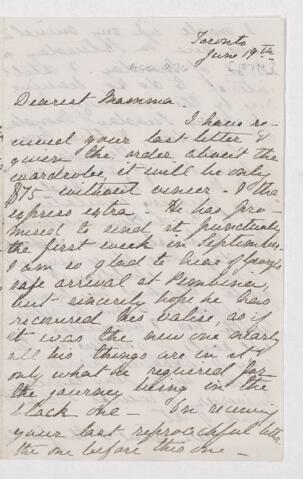 Toronto
June 19th
Dearest Mamma.
I have re-
ceived your last letter &
given the order about the
wardrobe, it will be only
$75 - without veneer - & the
express extra - He has pro-
mised to send it punctually
the first week in September.
I am so glad to hear of George's
safe arrival at Pembina,
but sincerely hope he has
recovered his valise, as if
it was the new one nearly
all his things are in it &
only what he required for
the journey being in the
black one - On receiving
your last reproachful letter
the one before this one -